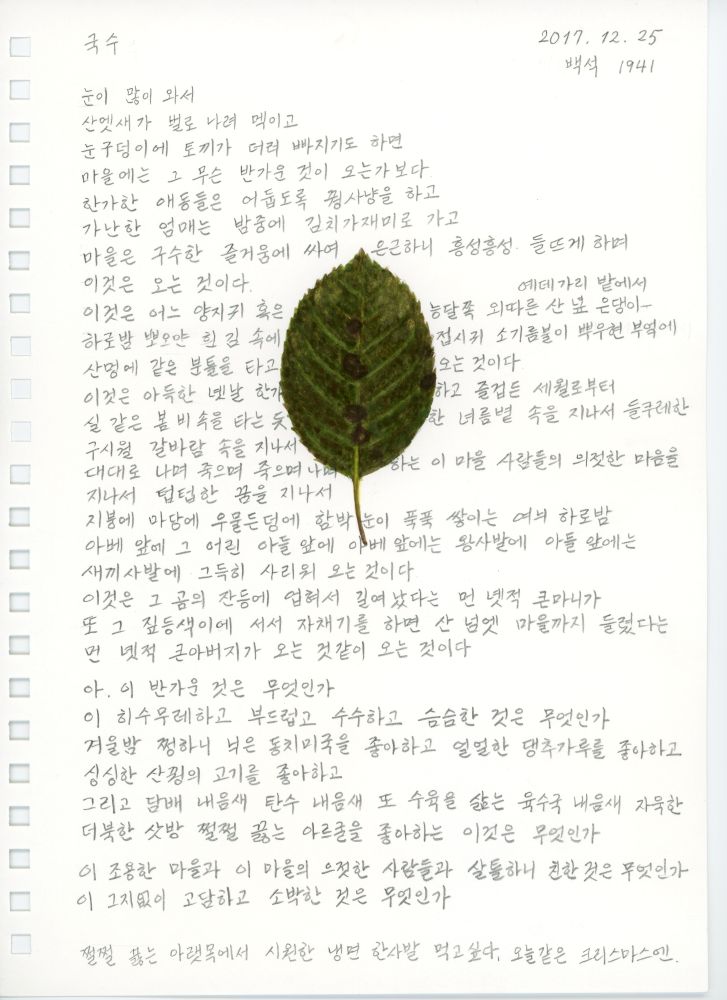 국수
2017. 12. 25
백석 1941
눈이 많이 와서
산엣새가 벌로 나려 멕이고
눈구덩이에 토끼가 더러 빠지기도 하면
마을에는 그 무슨 반가운 것이 오는가보다
한가한 애동들은 어둡도록 꿩사냥을 하고
가난한 엄매는 밤중에 김치가재미로 가고
마을은 구수한 즐거움에 싸여 은근하니 흥성흥성 들뜨게 하며
이것은 오는 것이다.
이것은 어느 양지귀 혹은 능달쪽 외따른 산 녚 은댕이
예데가리 밭에서
하로밤 뽀오얀 흰 김 속에 접시귀 소기름불이 뿌우현 부엌에
산멍에 같은 분틀을 타고 오는 것이다
이것은 아득한 녯날 한가 하고 즐겁든 세월로부터
실 같은 봄비속을 타는 듯 한 녀름볕 속을 지나서 들쿠레한
구시월 갈바람 속을 지나서
대대로 나며 죽으며 죽으며 나며 하는 이 마을 사람들의 의젓한 마음을
지나서 텁텁한 꿈을 지나서
지붕에 마당에 우물든덩에 함박눈이 푹푹 쌓이는 여늬 하로밤
아베 앞에 그 어린 아들 앞에 아베 앞에는 왕사발에 아들 앞에는
새끼사발에 그득히 사리워 오는것이다
이것은 그 곰의 잔등에 업혀서 길여났다는 먼 녯적 큰마니가
또 그 짚등색이에 서서 자채기를 하면 산 넘엣 마을까지 들렸다는
먼 녯적 큰아버지가 오는 것같이 오는 것이다
아, 이 반가운 것은 무엇인가
이 히수무레하고 부드럽고 수수하고 슴슴한 것은 무엇인가
겨울밤 쩡하니 닉은 동치미국을 좋아하고 얼얼한 댕추가루를 좋아하고
싱싱한 산꿩의 고기를 좋아하고
그리고 담배 내음새 탄수 내음새 또 수육을 삶는 육수국 내음새 자욱한
더북한 삿방 쩔쩔 끓는 아르굳을 좋아하는 이것은 무엇인가
이 조용한 마을과 이 마을의 으젓한 사람들과 살틀하니 친한것은 무엇인가
이 그지없이 고담하고 소박한 것은 무엇인가
쩔쩔 끓는 아랫목에서 시원한 냉면 한사발 먹고싶다, 오늘같은 크리스마스엔.